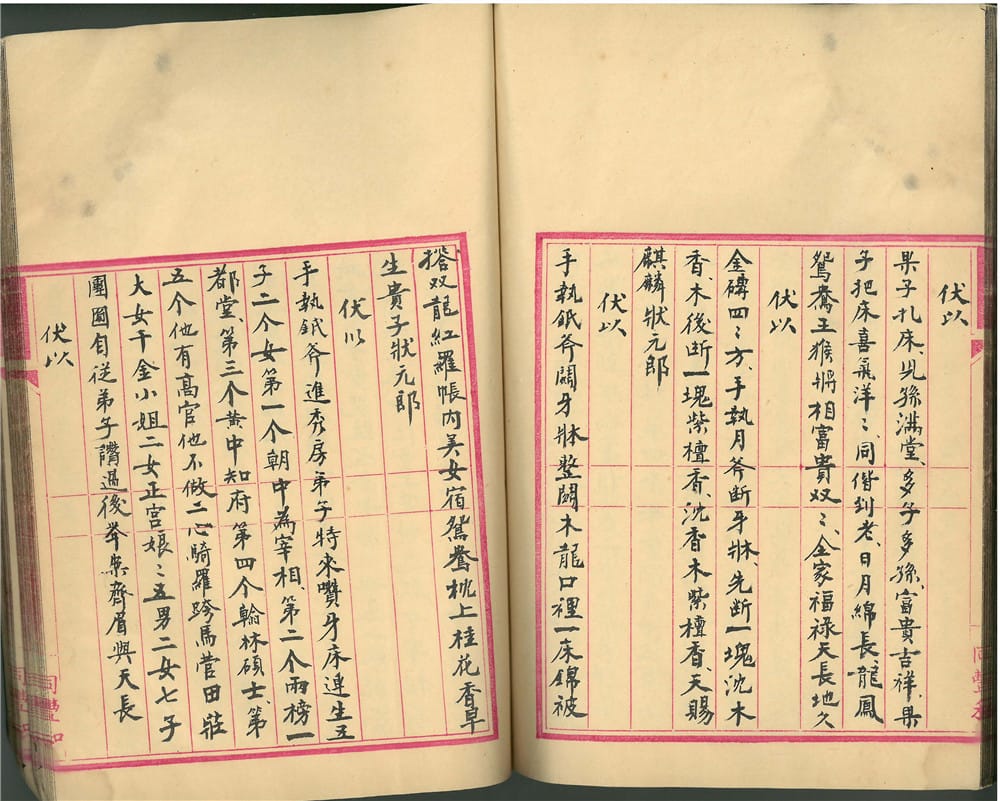 伏以
果子扎床、兒孫滿堂、多子多孫、富貴吉祥、果
子把床喜氣洋〻、同偕到老、日月綿長龍鳳
鴛鴦王猴將相富貴双〻、全家福祿天長地久
伏以
金磚四〻方、手執月斧断牙牀、先断一塊沈木
香、木後断一塊紫檀香、沈香木紫檀香、天賜
麒麟狀元郎
伏以
手執鉞斧闢牙牀整闢木龍口裡一床錦被
搭双龍紅羅帳內美女宿鴛鴦枕上桂花香早
生貴子狀元郎
伏以
手執鉞斧進秀房弟子特來囋牙床連生五
子二个女第一个朝中為宰相、第二个兩榜一
都堂、第三个黄中知府第四个翰林碩士、第
五个他有高官他不做二心騎羅跨馬管田莊
大女千金小姐二女正宫娘〻五男二女七子
團圓自從弟子讚過後举案齊眉與天長
伏以